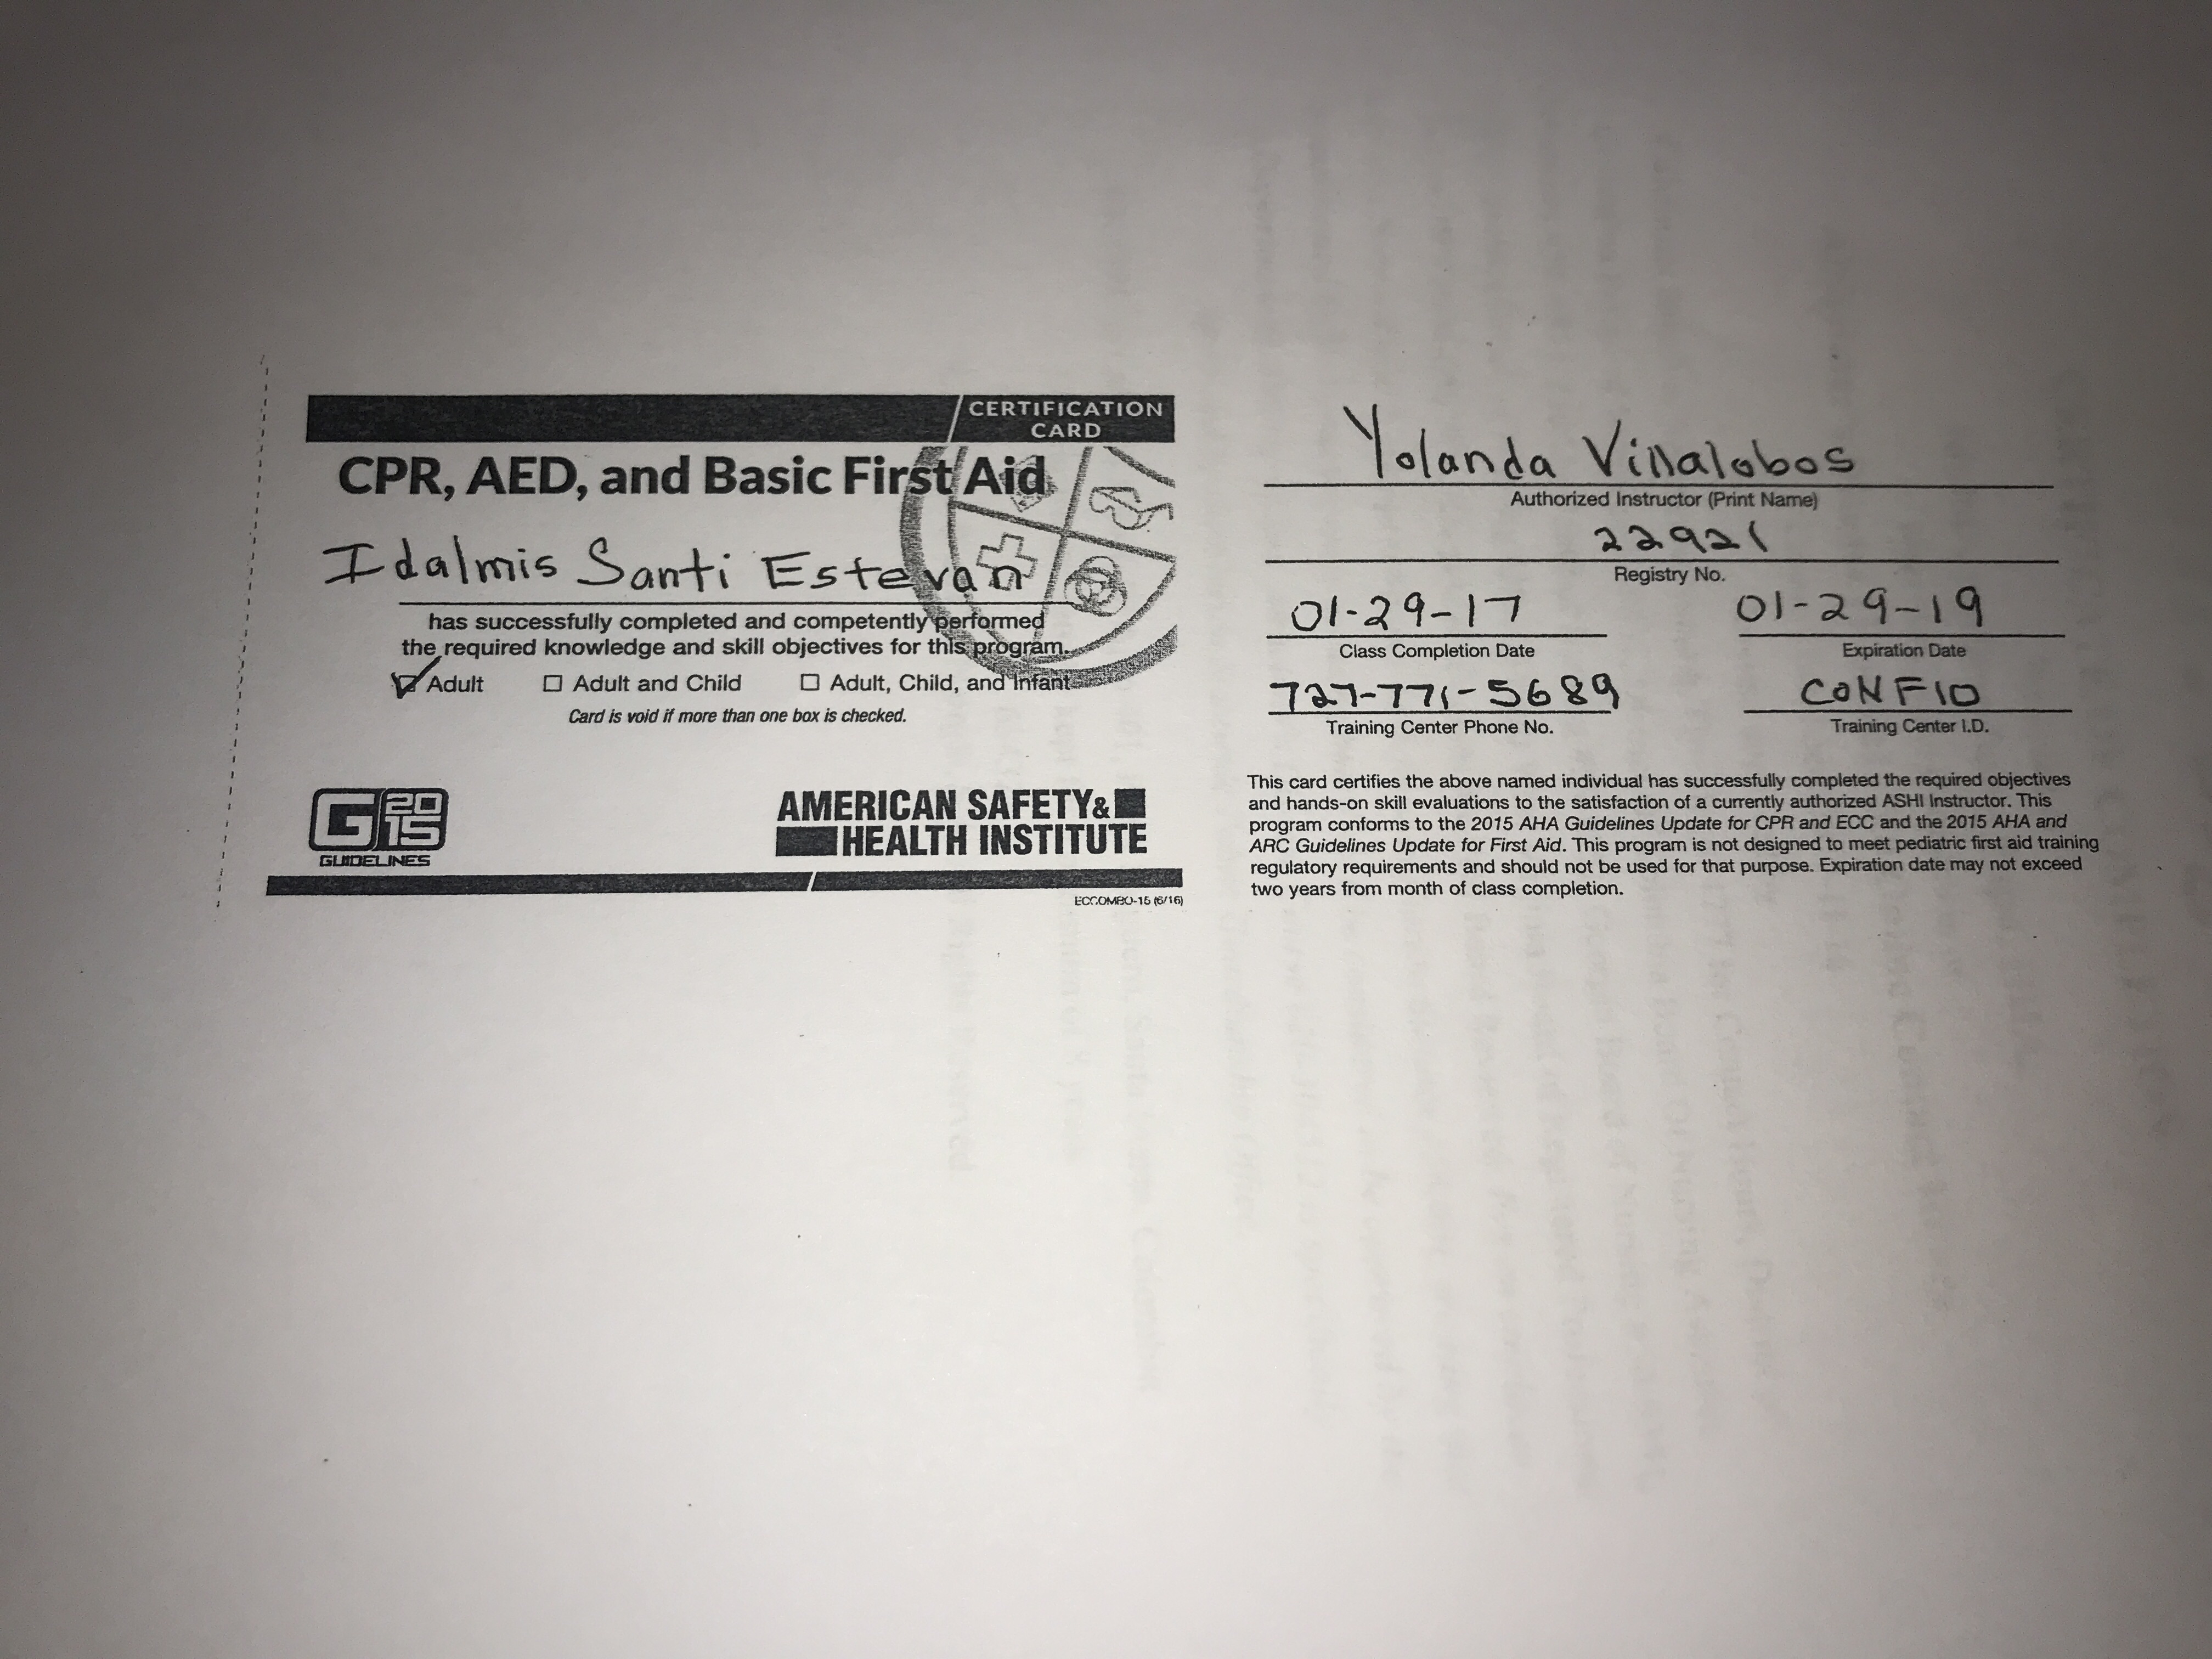 CERTIFICATION
CARD
CPR, AED, and Basic First Aid
Idalmis Santi Estevan
has successfully completed and competently performed
the required knowledge and skill objectives for this program.
Adult ☐ Adult and Child ☐ Adult, Child, and Infant
Card is void if more than one box is checked.
G2015
GUIDELINES
AMERICAN SAFETY&
HEALTH INSTITUTE
ECCOMBO-15 (6/16)
Yolanda Villalobos
Authorized Instructor (Print Name)
22921
Registry No.
01-29-17 01-29-19
Class Completion Date Expiration Date
727-771-5689 CONF10
Training Center Phone No. Training Center I.D.
This card certifies the above named individual has successfully completed the required objectives
and hands-on skill evaluations to the satisfaction of a currently authorized ASHI Instructor. This
program conforms to the 2015 AHA Guidelines Update for CPR and ECC and the 2015 AHA and
ARC Guidelines Update for First Aid. This program is not designed to meet pediatric first aid training
regulatory requirements and should not be used for that purpose. Expiration date may not exceed
two years from month of class completion.